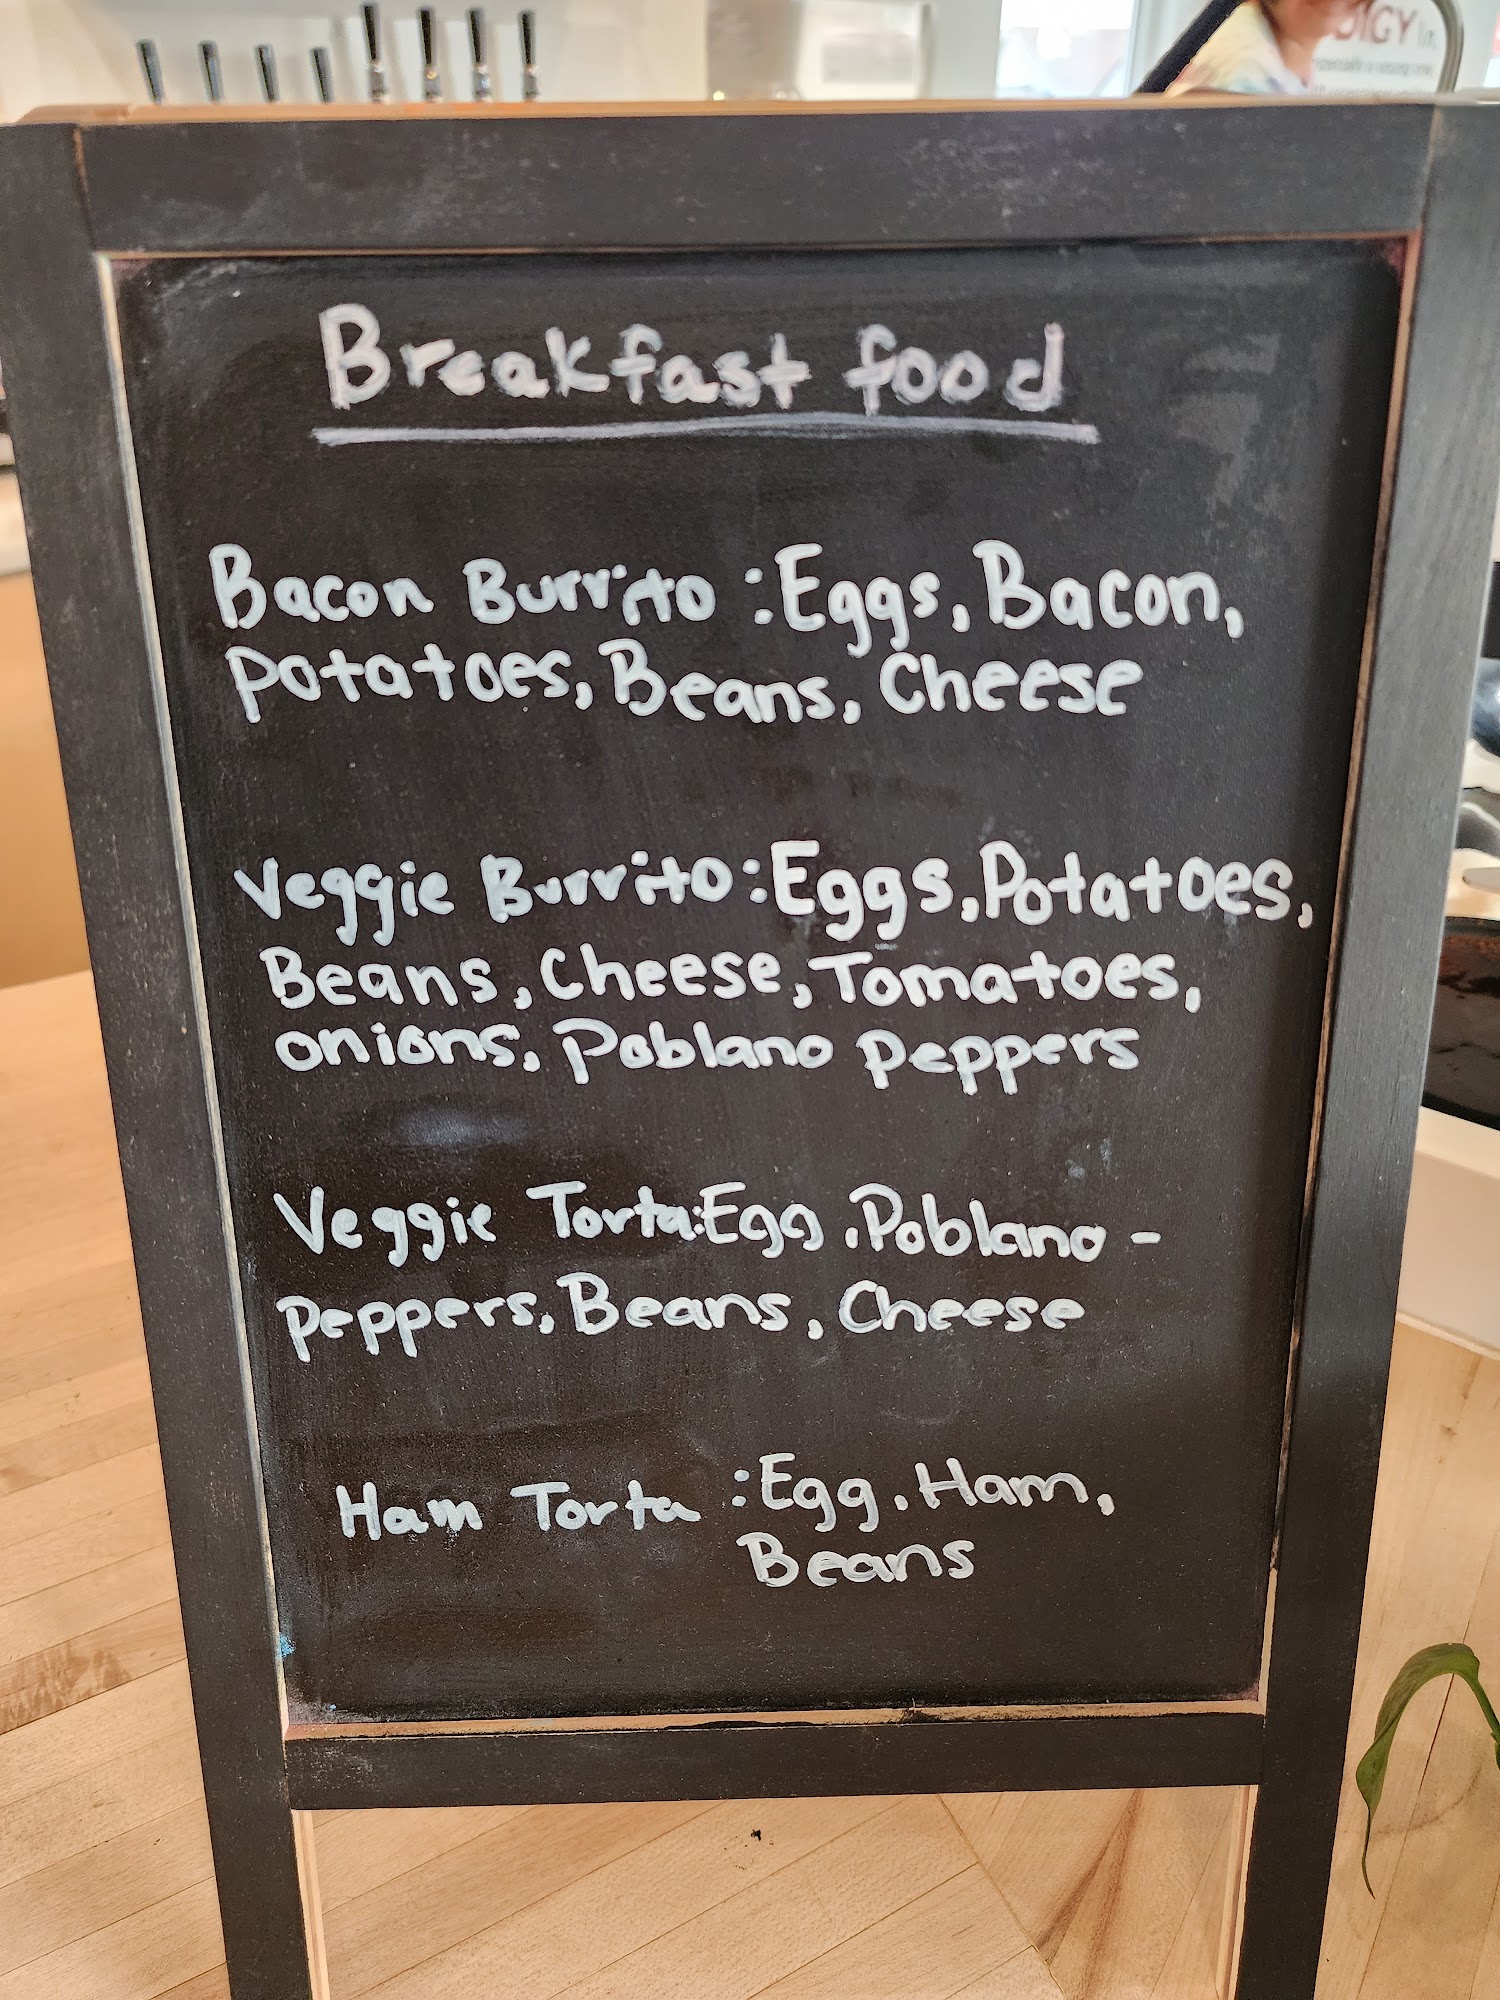 Breakfast food
Bacon Burrito : Eggs, Bacon,
Potatoes, Beans, Cheese
Veggie Burrito: Eggs, Potatoes,
Beans, Cheese, Tomatoes,
onions, Poblano peppers
Veggie Torta: Egg, Poblano -
peppers, Beans, Cheese
Ham Torta : Egg, Ham,
Beans